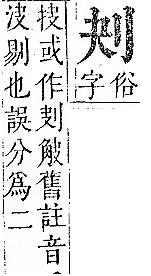 俗字
技或作觙舊註音
剔也誤分爲二